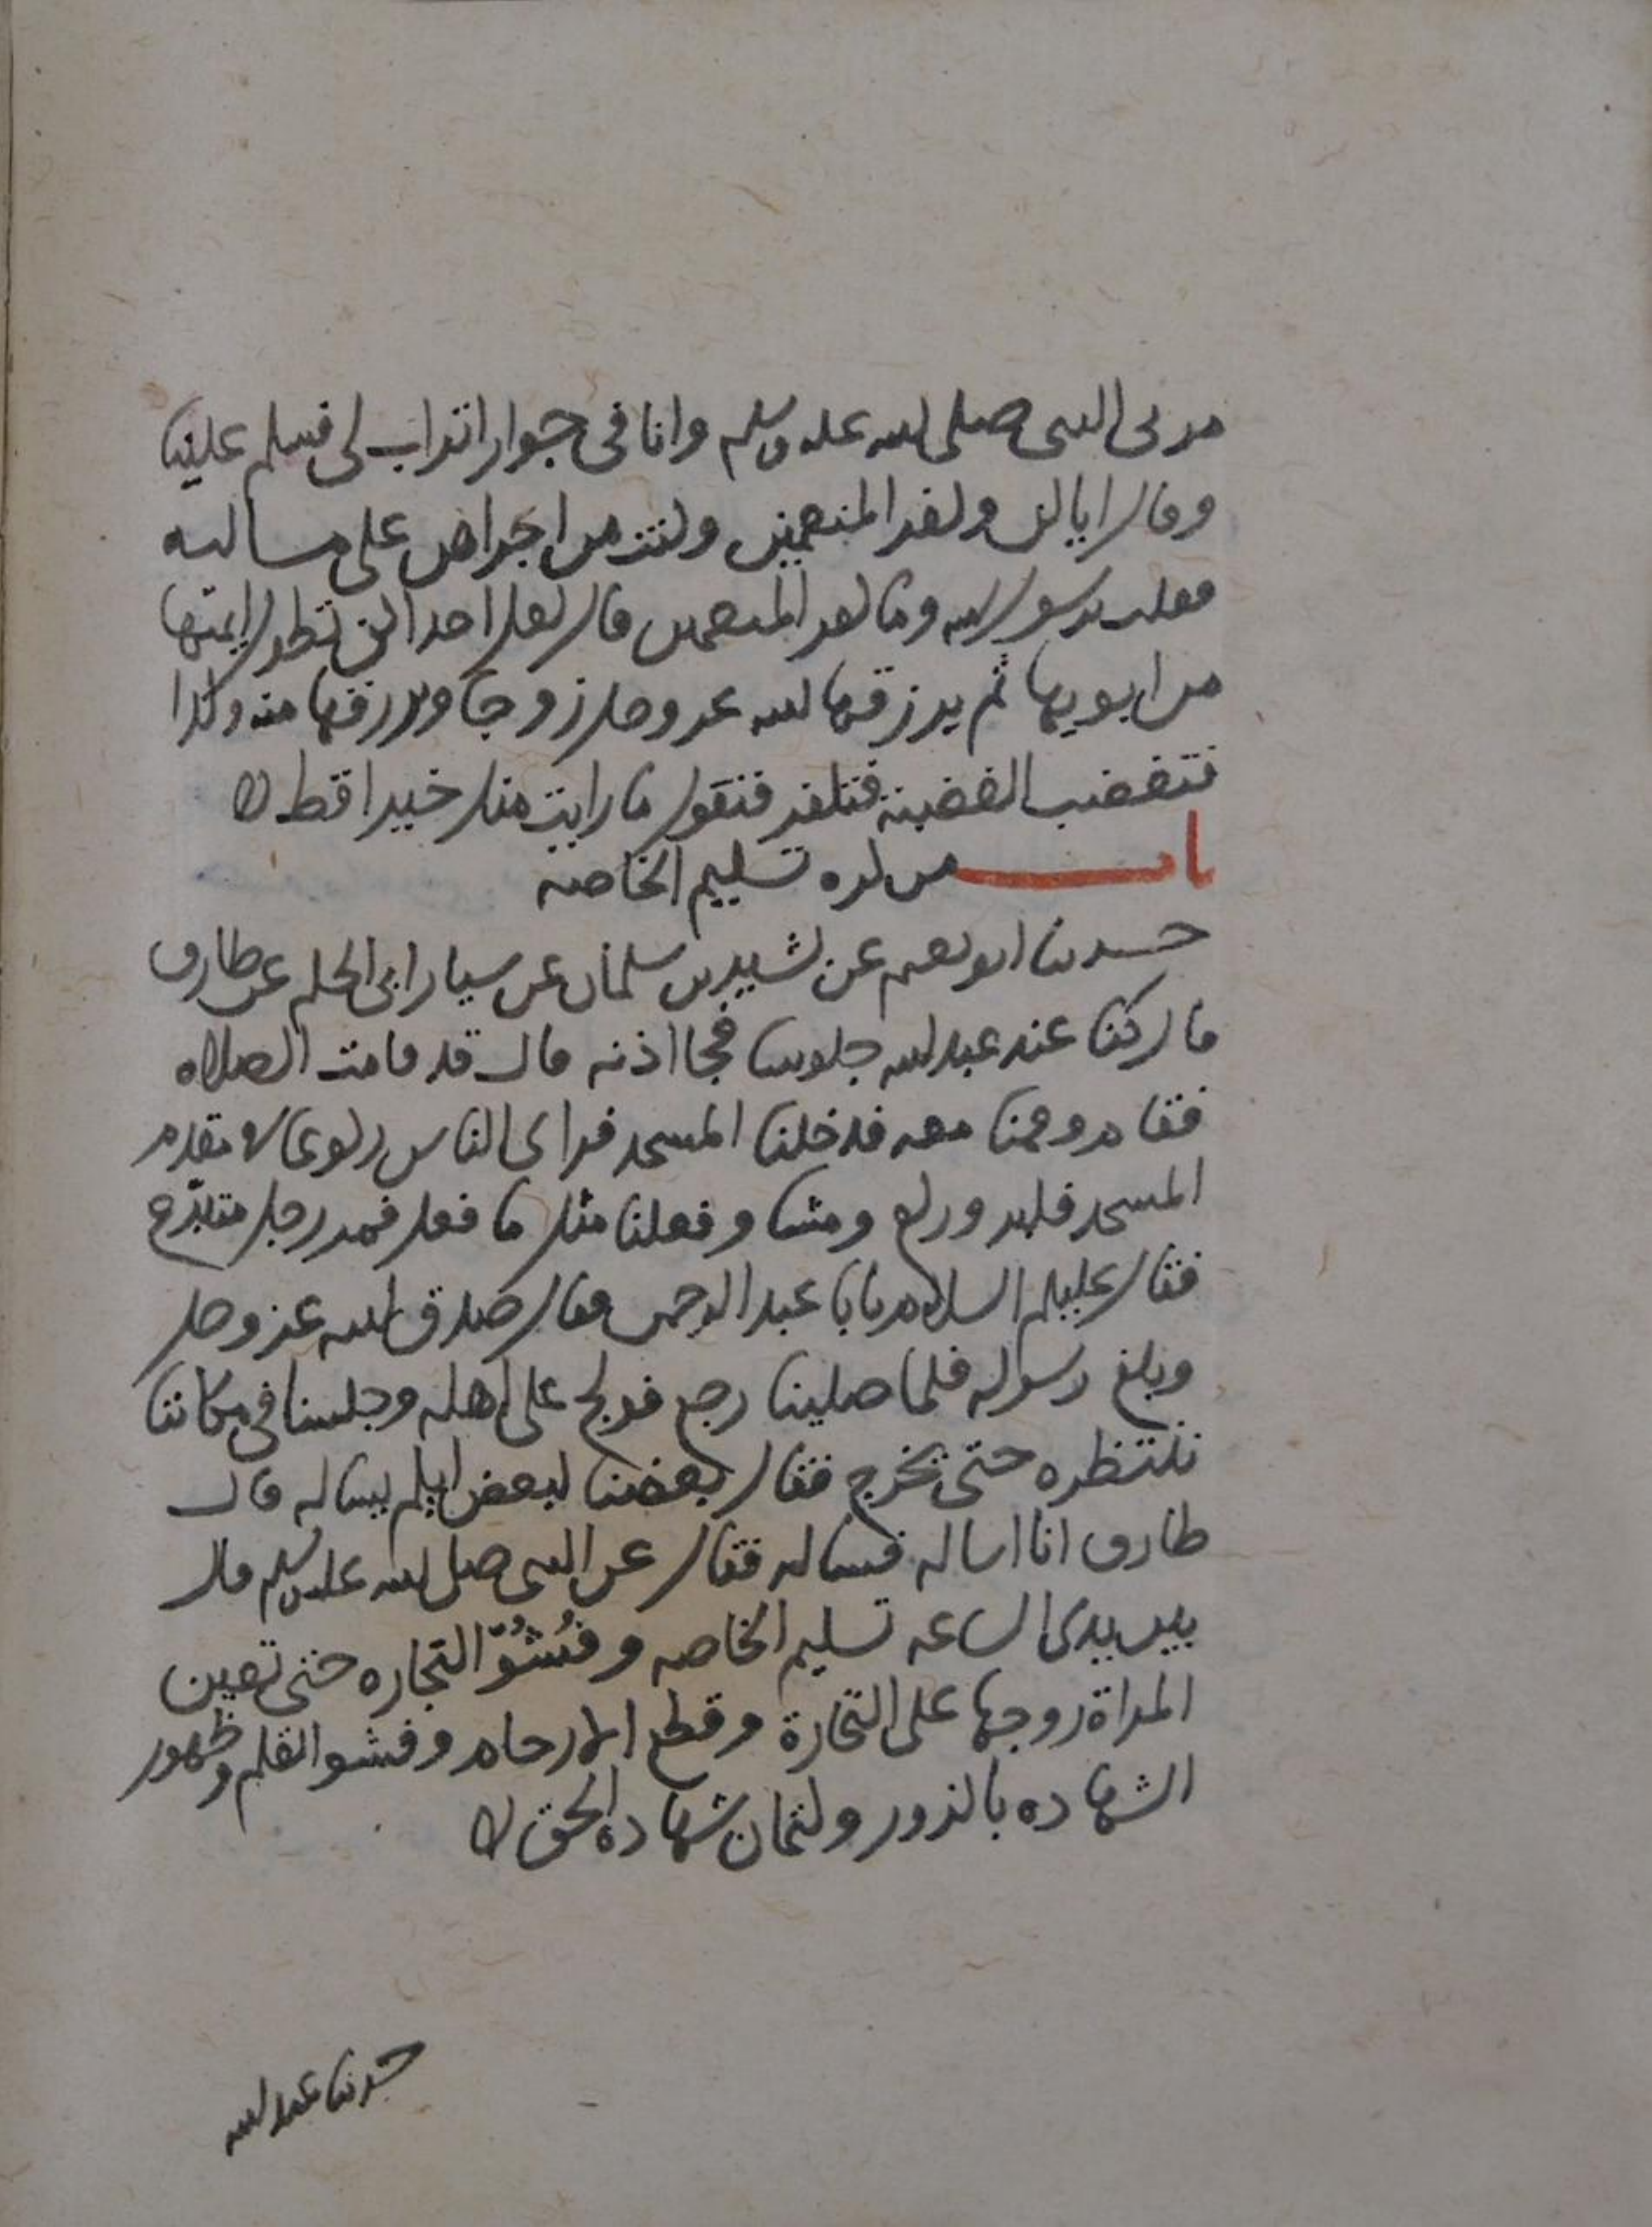 مر بى النبى صلى الله عليه وسلم وانا فى جوار اتراب لى فسلم علينا
وقال اياكن وكفر المنعمين وكنت من اجراهن على مسالته
فقلت يرسول الله وما كفر المنعمين قال لعل احداكن تطول ايمتها
من ابويها ثم يرزقها الله عز وجل زوجا ويرزقها منه ولدا
فتغضب الغضبة فتكفر فتقول ما رايت منك خيرا قط
باب من كره تسليم الخاصة
حدثنا ابو نعيم عن بشير بن سلمان عن سيار ابى الحكم عن طارق
قال كنا عند عبد الله جلوسا فجا اذنه قال قد قامت الصلاه
فقام وقمنا معه فدخلنا المسجد فراى الناس ركوعا فى مقدم
المسجد فكبر وركع ومشا وفعلنا مثل ما فعل فمر رجل متبرع
فقال عليكم السلام يابا عبد الرحمن فقال صدق الله عز وجل
وبلغ رسوله فلما صلينا رجع فولج على اهله وجلسنا فى مكاننا
ننتظره حتى يخرج فقال بعضنا لبعض ايكم يساله قال
طارق انا اساله فساله فقال عن النبى صلى الله عليه وسلم قال
بين يدى الساعه تسليم الخاصه وفُشُوّ التجاره حتى تعين
المراة زوجها على التجارة وقطع الارحام وفشو القلم وظهور
الشهاده بالزور وكتمان شهاده الحق
حدثنا عبد الله